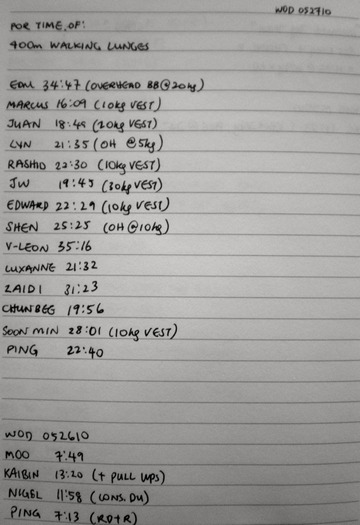 WOD 052710
FOR TIME, OF:
400m WALKING LUNGES
EDM 34:47 (OVERHEAD BB@20kg)
MARCUS 16:09 (10kg VEST)
JUAN 18:45 (20kg VEST)
LYN 21:35 (OH @5kg)
RASHID 22:30 (10kg VEST)
JW 19:45 (30kg VEST)
EDWARD 22:29 (10kg VEST)
SHEN 25:25 (OH@10kg)
V-LEON 35:16
LUXANNE 21:32
ZAIDI 31:23
CHUNBEG 19:56
SOON MIN 28:01 (10kg VEST)
PING 22:40
WOD 052610
MOO 7:49
KAIBIN 13:20 (+ PULL UPS)
NIGEL 11:58 (CONS. DU)
PING 7:13